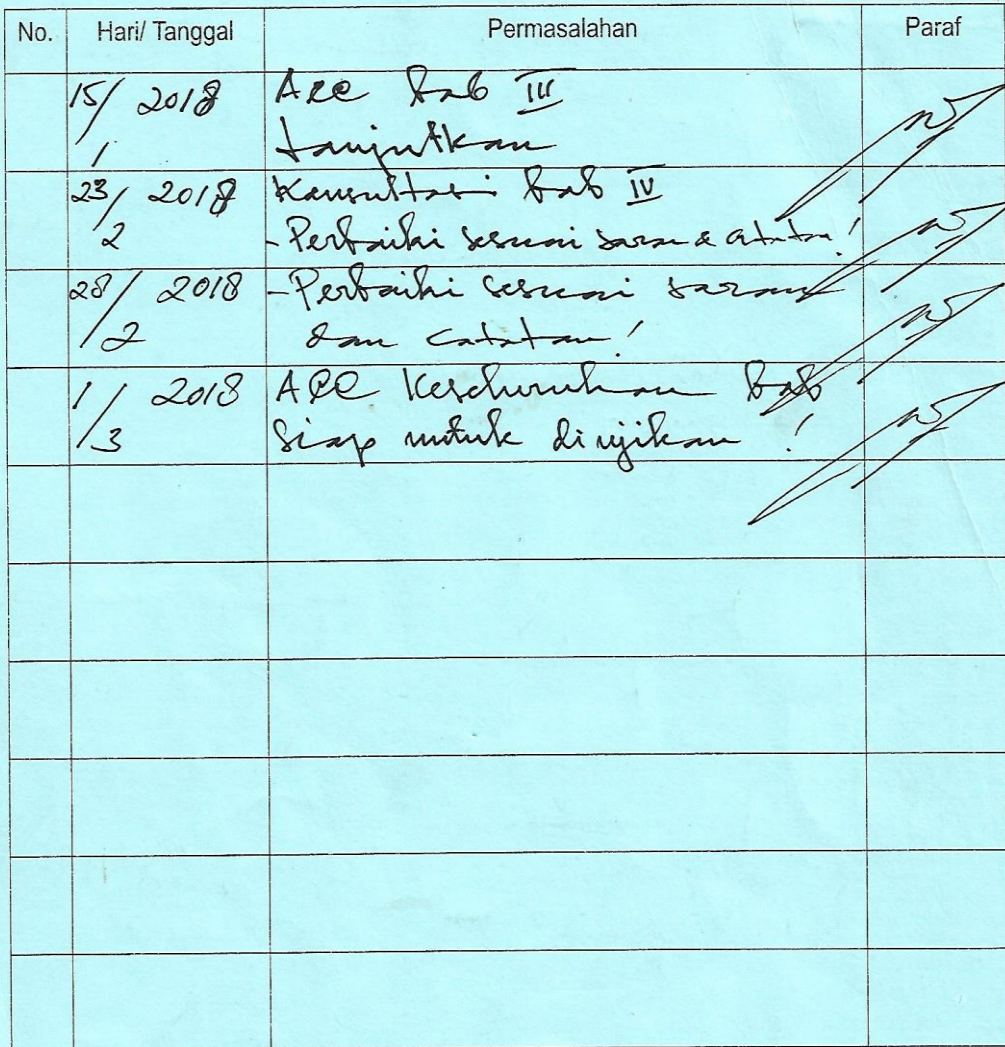 No. Hari/ Tanggal Permasalahan Paraf
15/1 2018 Acc bab III
Lanjutkan
23/2 2018 Konsultasi bab IV
- Perbaiki sesuai saran & catatan!
28/2 2018 - Perbaiki sesuai saran
dan catatan!
1/3 2018 ACC Keseluruhan bab
Siap untuk diujikan!